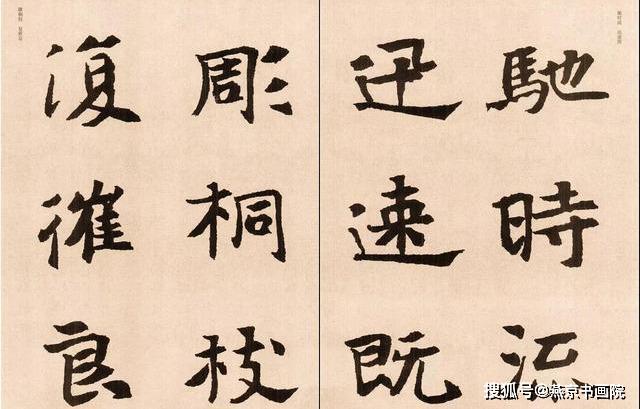 馳時
迅速既
彫桐枝
復摧良
搜狐号@燕京书画院